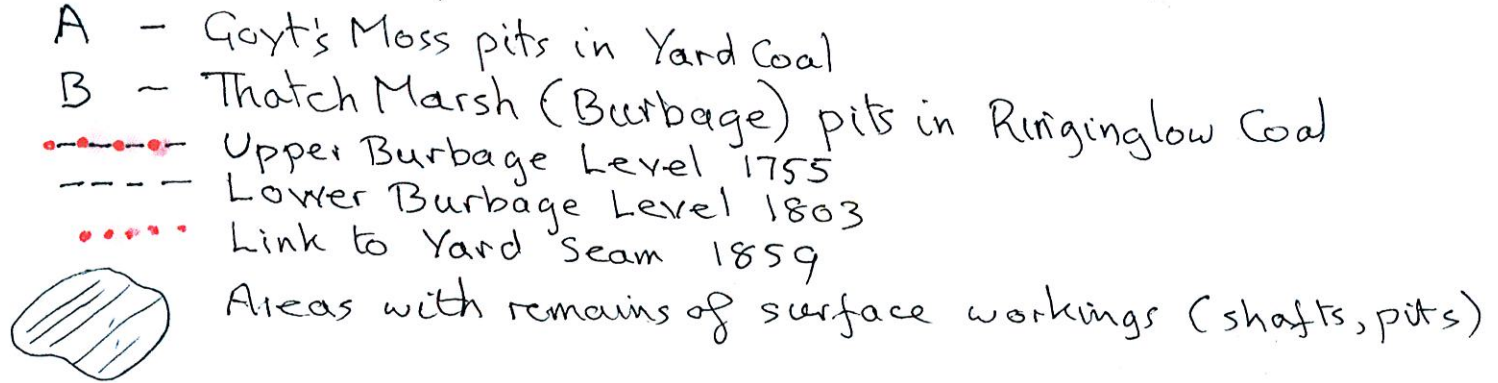 A - Goyt's Moss pits in Yard Coal
B - Thatch Marsh (Burbage) pits in Ringinglow Coal
Upper Burbage Level 1755
Lower Burbage Level 1803
Link to Yard Seam 1859
Areas with remains of surface workings (shafts, pits)